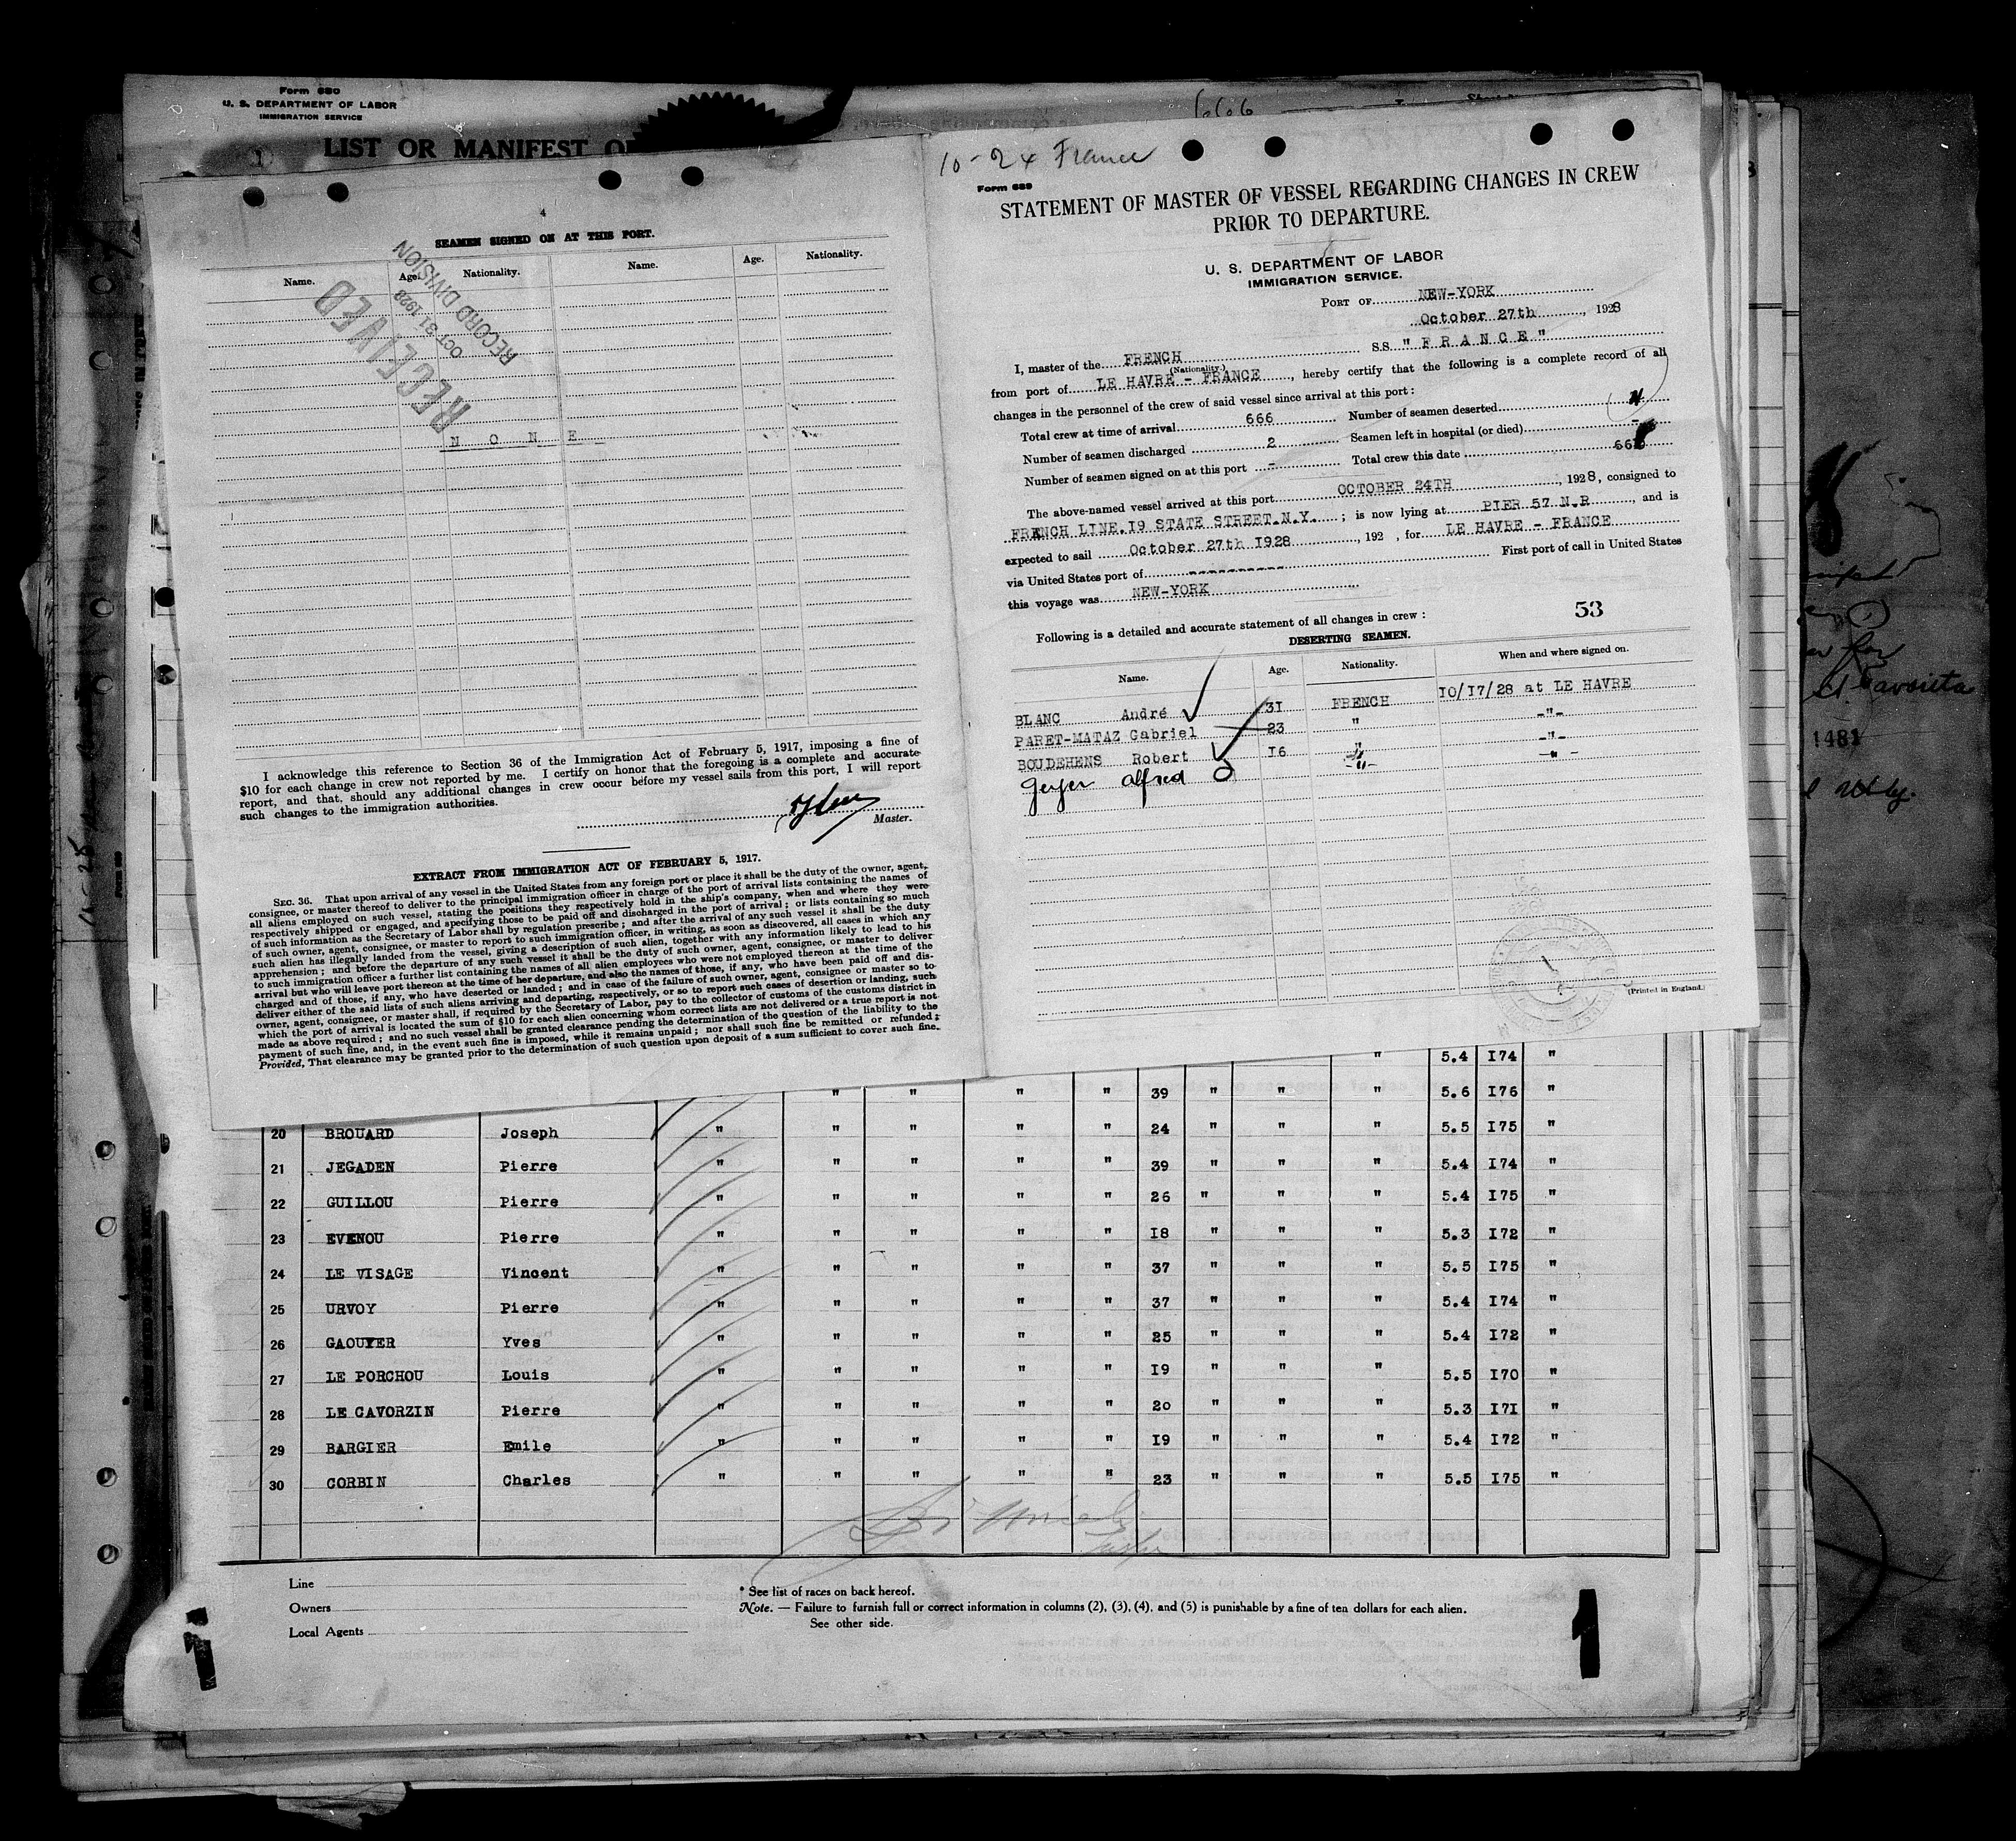 Form 680
U. S. DEPARTMENT OF LABOR
IMMIGRATION SERVICE
LIST OR MANIFEST O
666
4
SEAMEN SIGNED ON AT THIS PORT.
Name. Age. Nationality. Name. Age. Nationality.
RECEIVED
OCT 31 1928
RECORD DIVISION
N O N E
I acknowledge this reference to Section 36 of the Immigration Act of February 5, 1917, imposing a fine of
$10 for each change in crew not reported by me. I certify on honor that the foregoing is a complete and accurate
report, and that, should any additional changes in crew occur before my vessel sails from this port, I will report
such changes to the immigration authorities.
Master.
EXTRACT FROM IMMIGRATION ACT OF FEBRUARY 5, 1917.
SEC. 36. That upon arrival of any vessel in the United States from any foreign port or place it shall be the duty of the owner, agent,
consignee, or master thereof to deliver to the principal immigration officer in charge of the port of arrival lists containing the names of
all aliens employed on such vessel, stating the positions they respectively hold in the ship's company, when and where they were
respectively shipped or engaged, and specifying those to be paid off and discharged in the port of arrival; or lists containing so much
of such information as the Secretary of Labor shall by regulation prescribe; and after the arrival of any such vessel it shall be the duty
of such owner, agent, consignee, or master to report to such immigration officer, in writing, as soon as discovered, all cases in which any
such alien has illegally landed from the vessel, giving a description of such alien, together with any information likely to lead to his
apprehension; and before the departure of any such vessel it shall be the duty of such owner, agent, consignee, or master to deliver
to such immigration officer a further list containing the names of all alien employees who were not employed thereon at the time of the
arrival but who will leave port thereon at the time of her departure, and also the names of those, if any, who have been paid off and dis-
charged and of those, if any, who have deserted or landed; and in case of the failure of such owner, agent, consignee or master so to
deliver either of the said lists of such aliens arriving and departing, respectively, or so to report such cases of desertion or landing, such
owner, agent, consignee, or master shall, if required by the Secretary of Labor, pay to the collector of customs of the customs district in
which the port of arrival is located the sum of $10 for each alien concerning whom correct lists are not delivered or a true report is not
made as above required; and no such vessel shall be granted clearance pending the determination of the question of the liability to the
payment of such fine, and, in the event such fine is imposed, while it remains unpaid; nor shall such fine be remitted or refunded:
Provided, That clearance may be granted prior to the determination of such question upon deposit of a sum sufficient to cover such fine.
10-24 France
Form 689
STATEMENT OF MASTER OF VESSEL REGARDING CHANGES IN CREW
PRIOR TO DEPARTURE.
U. S. DEPARTMENT OF LABOR
IMMIGRATION SERVICE.
PORT OF NEW-YORK
October 27th, 1928
I, master of the FRENCH SS " F R A N C E "
(Nationality.)
from port of LE HAVRE - FRANCE, hereby certify that the following is a complete record of all
changes in the personnel of the crew of said vessel since arrival at this port:
Total crew at time of arrival 666 Number of seamen deserted 4
Number of seamen discharged 2 Seamen left in hospital (or died) -
Number of seamen signed on at this port - Total crew this date
The above-named vessel arrived at this port OCTOBER 24TH, 1928, consigned to
FRENCH LINE.19 STATE STREET.N.Y. ; is now lying at PIER 57 N.R., and is
expected to sail October 27th 1928, 192 , for LE HAVRE - FRANCE
via United States port of --------- First port of call in United States
this voyage was NEW-YORK
53
Following is a detailed and accurate statement of all changes in crew:
DESERTING SEAMEN.
Name. Age. Nationality. When and where signed on.
BLANC André 31 FRENCH 10/17/28 at LE HAVRE
PARET-MATAZ Gabriel 23 " -"-
BOUDEHENS Robert 16 " -"-
Geyer Alfred -"- -"-
(Printed in England.)
" 5.4 174 "
" " " " 39 " " " 5.6 176 "
20 BROUARD Joseph " " " " " 24 " " " 5.5 175 "
21 JEGADEN Pierre " " " " " 39 " " " 5.4 174 "
22 GUILLOU Pierre " " " " " 26 " " " 5.4 175 "
23 EVENOU Pierre " " " " " 18 " " " 5.3 172 "
24 LE VISAGE Vincent " " " " " 37 " " " 5.5 175 "
25 URVOY Pierre " " " " " 37 " " " 5.4 174 "
26 GAOUYER Yves " " " " " 25 " " " 5.4 172 "
27 LE PORCHOU Louis " " " " " 19 " " " 5.5 170 "
28 LE CAVORZIN Pierre " " " " " 20 " " " 5.3 171 "
29 BARGIER Emile " " " " " 19 " " " 5.4 172 "
30 CORBIN Charles " " " " " 23 " " " 5.5 175 "
Line
Owners
Local Agents
* See list of races on back hereof.
Note. — Failure to furnish full or correct information in columns (2), (3), (4), and (5) is punishable by a fine of ten dollars for each alien.
See other side.
1
1
1481